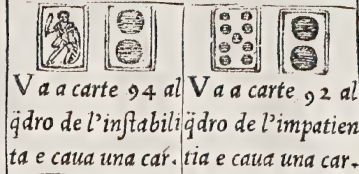 Va a carte 94 al
q̃dro de l'inſtabili
ta e caua una car.
Va a carte 92 al
q̃dro de l'impatien
tia e caua una car.